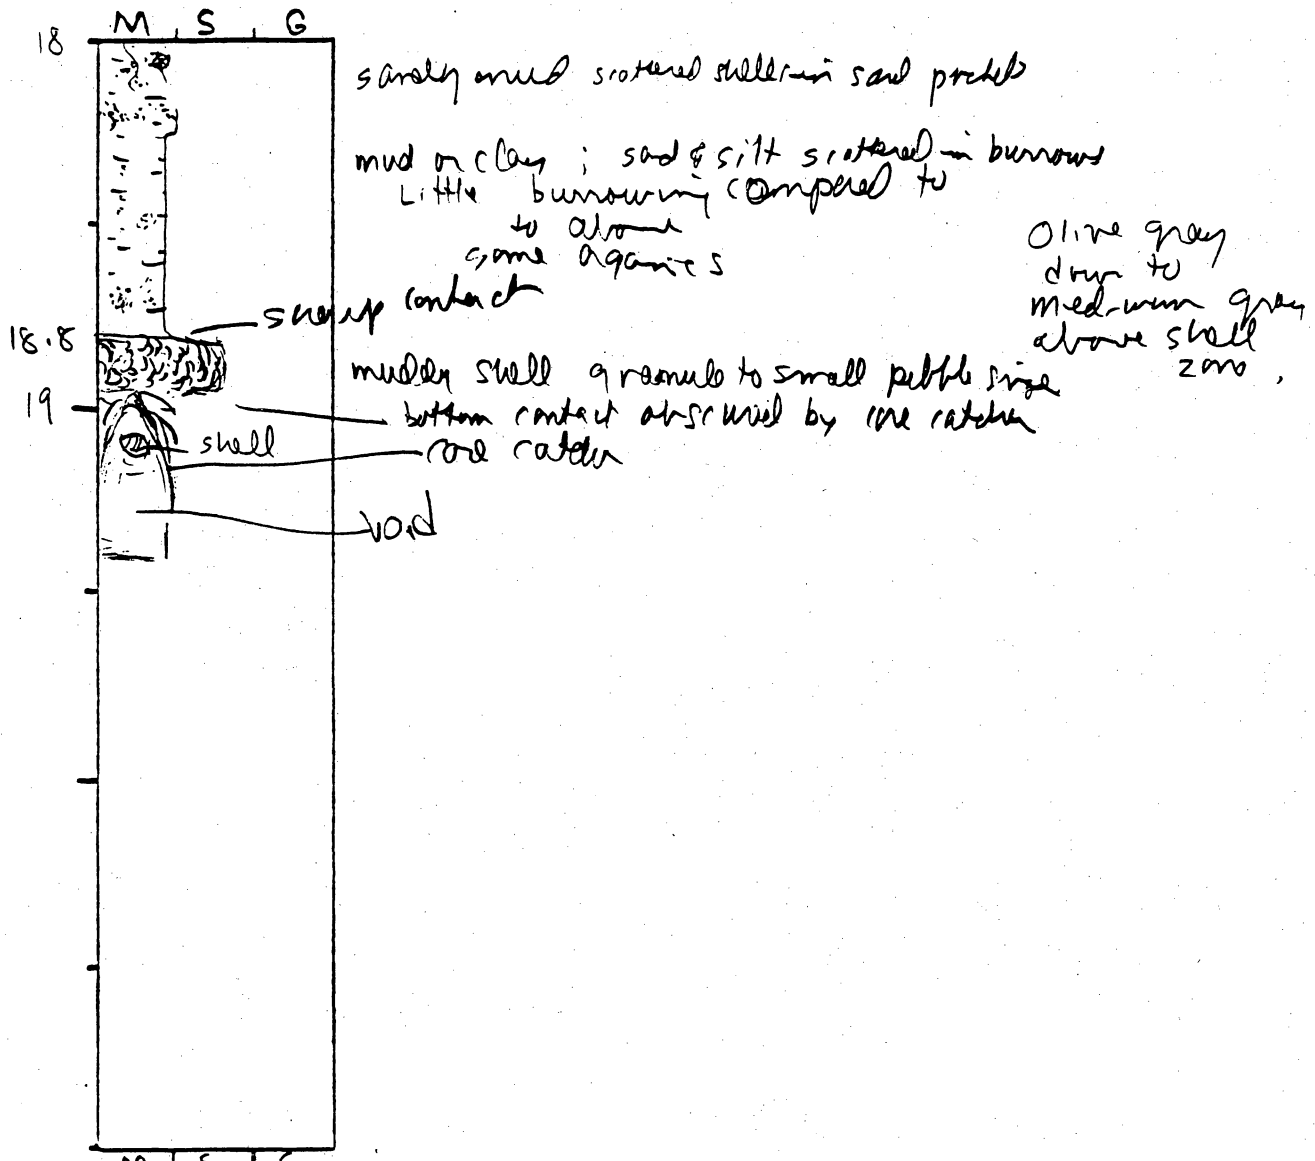 M S G
18
sandy mud scattered shell in sand pockets
mud or clay ; sad & silt scattered in burrows
Little burrowing compared to
to above
some organics
Olive gray
down to
medium gray
above shell
zone .
sharp contact
18.8
muddy shell granule to small pebble size
19
bottom contact obscured by core catcher
shell
core catcher
void
M S G